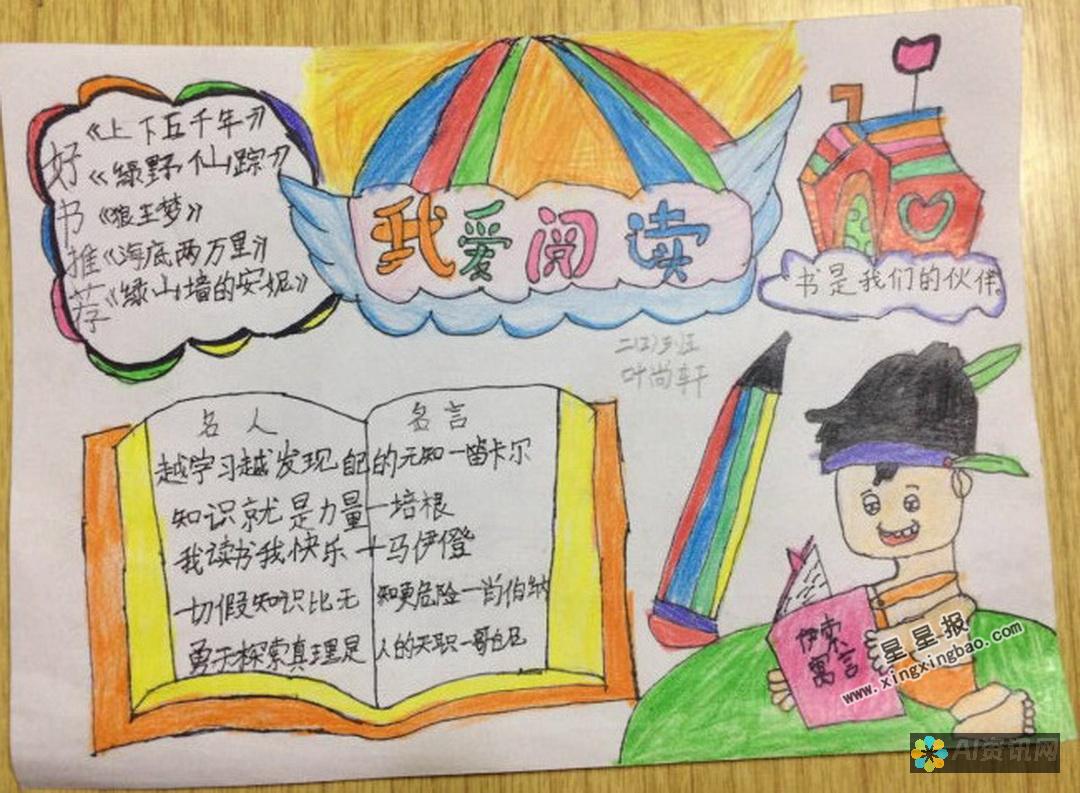 我爱阅读
好书推荐
《上下五千年》
《绿野仙踪》
《狼王梦》
《海底两万里》
《绿山墙的安妮》
书是我们的伙伴。
二(2)班
叶尚轩
名人名言
越学习越发现自己的无知一笛卡尔
知识就是力量一培根
我读书我快乐一马伊僜
一切假知识比无知更危险一肖伯纳
勇于探索真理是人的天职一哥白尼
伊索
寓言
星星报
www.xingxingbao.com
AI资讯网